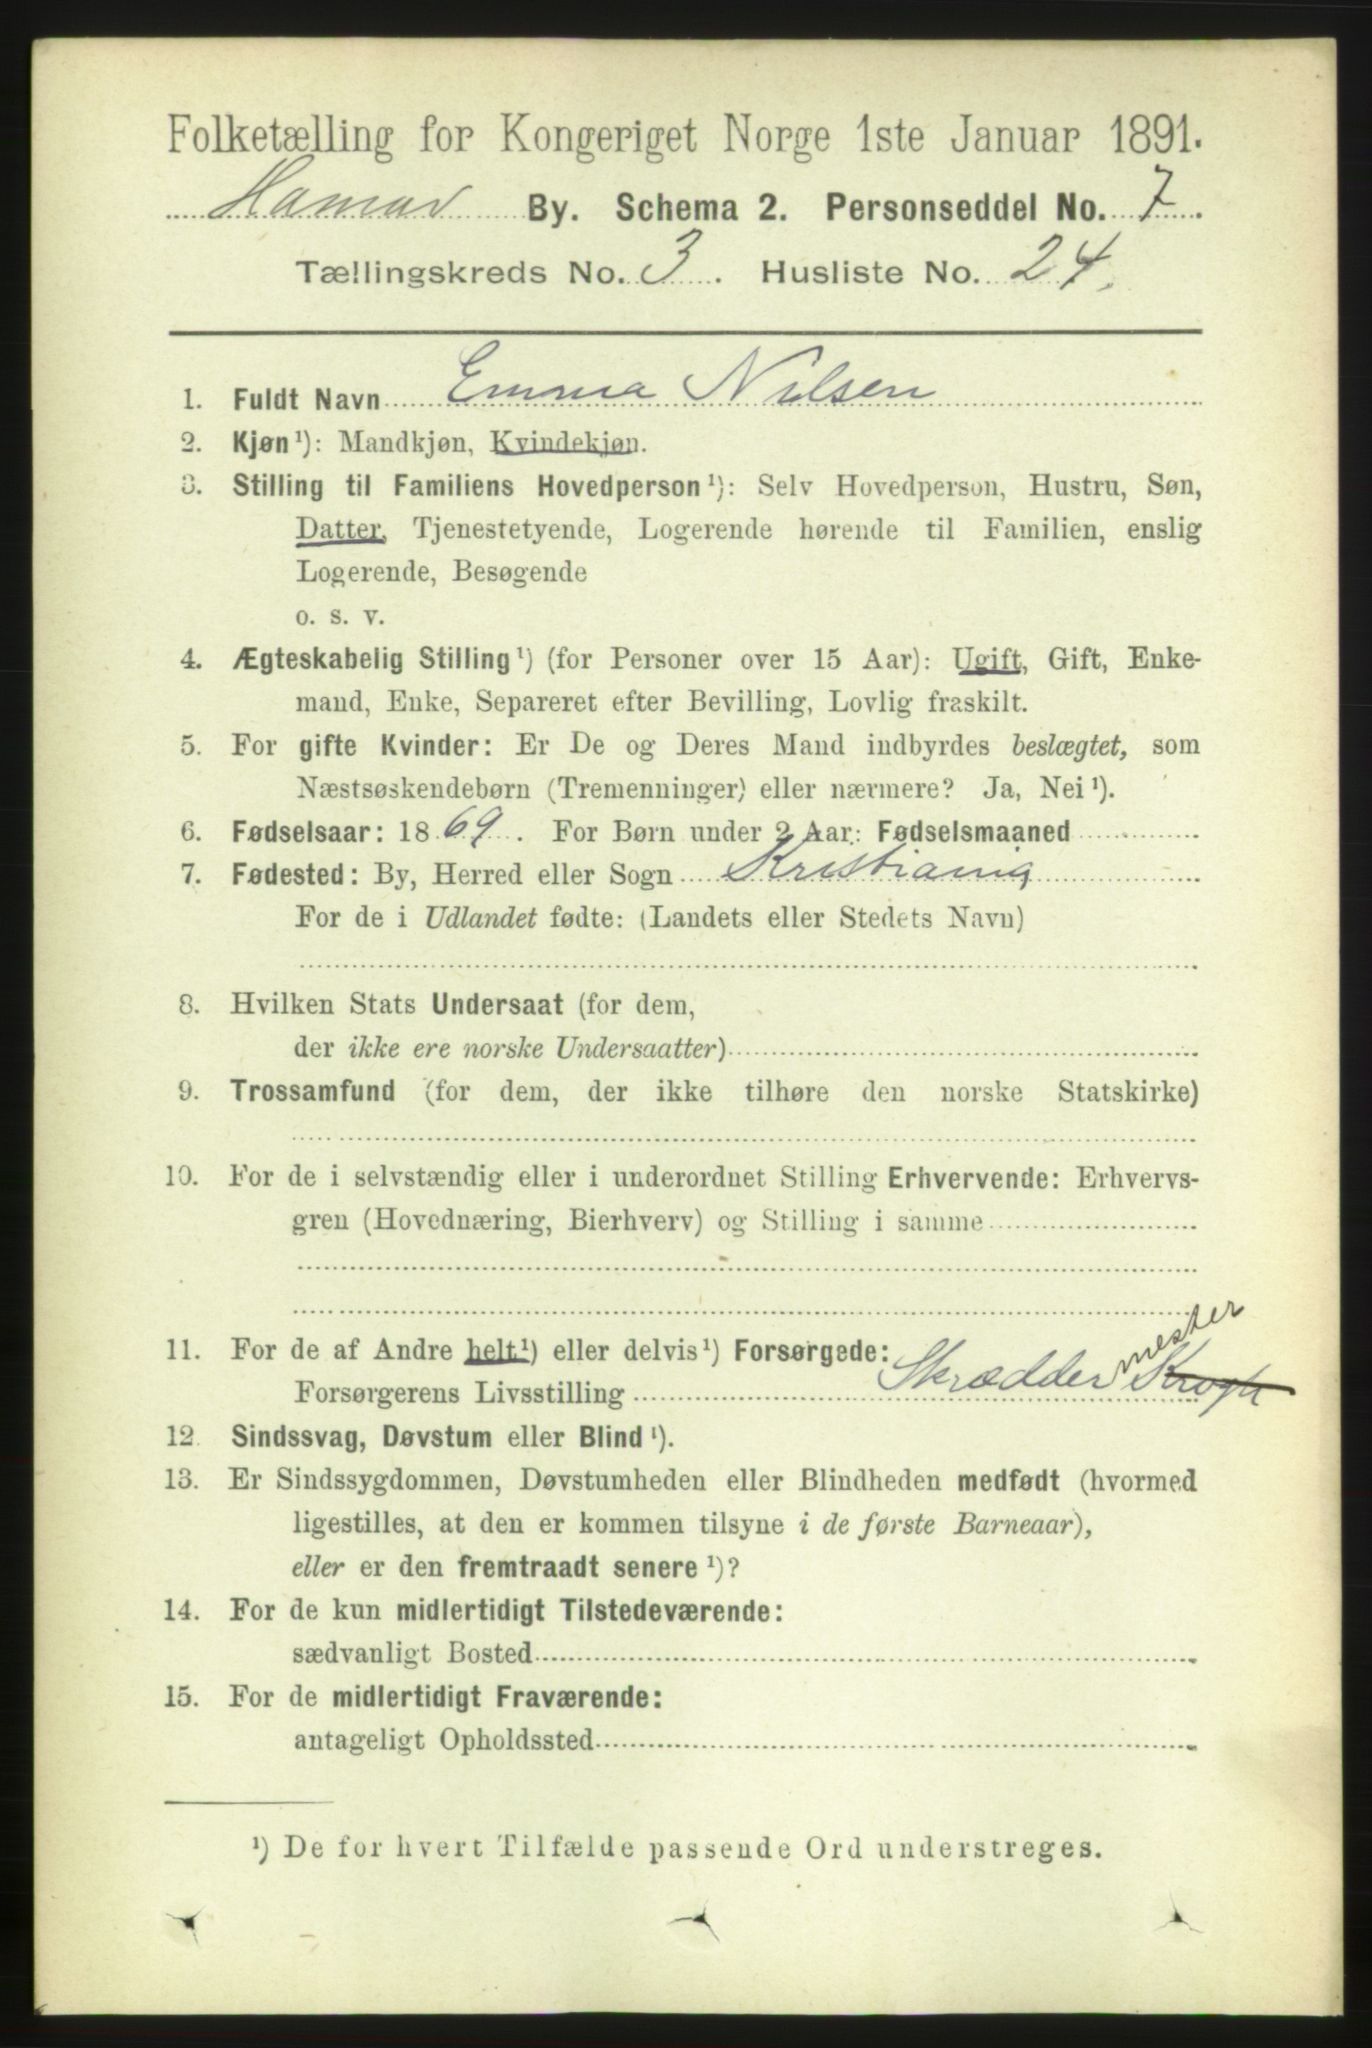 Folketælling for Kongeriget Norge 1ste Januar 1891.
Hamar By. Schema 2. Personseddel No. 7.
Tællingskreds No. 3. Husliste No. 24.
1. Fuldt Navn Emma Nilsen
2. Kjøn¹): Mandkjøn, Kvindekjøn.
3. Stilling til Familiens Hovedperson¹): Selv Hovedperson, Hustru, Søn,
Datter, Tjenestetyende, Logerende hørende til Familien, enslig
Logerende, Besøgende
o. s. v.
4. Ægteskabelig Stilling¹) (for Personer over 15 Aar): Ugift, Gift, Enke-
mand, Enke, Separeret efter Bevilling, Lovlig fraskilt.
5. For gifte Kvinder: Er De og Deres Mand indbyrdes beslægtet, som
Næstsøskendebørn (Tremenninger) eller nærmere? Ja, Nei¹).
6. Fødselsaar: 1869. For Børn under 2 Aar: Fødselsmaaned
7. Fødested: By, Herred eller Sogn Kristiania
For de i Udlandet fødte: (Landets eller Stedets Navn)
8. Hvilken Stats Undersaat (for dem,
der ikke ere norske Undersaatter)
9. Trossamfund (for dem, der ikke tilhøre den norske Statskirke)
10. For de i selvstændig eller i underordnet Stilling Erhvervende: Erhvervs-
gren (Hovednæring, Bierhverv) og Stilling i samme
11. For de af Andre helt¹) eller delvis¹) Forsørgede:
Forsørgerens Livsstilling Skrædder mester Krogh
12. Sindssvag, Døvstum eller Blind¹).
13. Er Sindssygdommen, Døvstumheden eller Blindheden medfødt (hvormed
ligestilles, at den er kommen tilsyne i de første Barneaar),
eller er den fremtraadt senere¹)?
14. For de kun midlertidigt Tilstedeværende:
sædvanligt Bosted
15. For de midlertidigt Fraværende:
antageligt Opholdssted
¹) De for hvert Tilfælde passende Ord understreges.